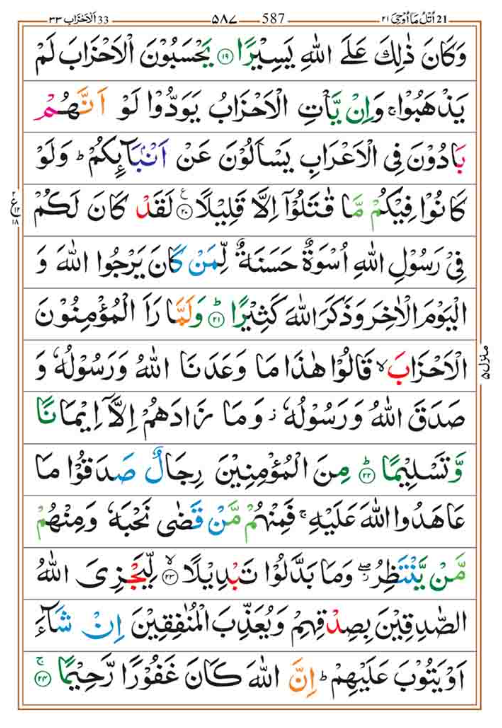 اُتْلُ مَاۤ اُوْحِیَ ۲۱ 21 587 ۵۸۷ اَلْاَحْزَاب ۳۳ 33
وَكَانَ ذٰلِكَ عَلَى اللّٰهِ یَسِیْرًا ﴿۱۹﴾ یَحْسَبُوْنَ الْاَحْزَابَ لَمْ
یَذْهَبُوْا ۚ وَاِنْ یَّاْتِ الْاَحْزَابُ یَوَدُّوْا لَوْ اَنَّهُمْ
بَادُوْنَ فِی الْاَعْرَابِ یَسْاَلُوْنَ عَنْ اَنْۢبَآىِٕكُمْ ؕ وَلَوْ
كَانُوْا فِیْكُمْ مَّا قٰتَلُوْۤا اِلَّا قَلِیْلًا ﴿۲۰﴾ ع لَقَدْ كَانَ لَكُمْ
فِیْ رَسُوْلِ اللّٰهِ اُسْوَةٌ حَسَنَةٌ لِّمَنْ كَانَ یَرْجُوا اللّٰهَ وَ
الْیَوْمَ الْاٰخِرَ وَذَكَرَ اللّٰهَ كَثِیْرًا ﴿۲۱﴾ ؕ وَلَمَّا رَاَ الْمُؤْمِنُوْنَ
الْاَحْزَابَ ۙ قَالُوْا هٰذَا مَا وَعَدَنَا اللّٰهُ وَرَسُوْلُهٗ وَ
صَدَقَ اللّٰهُ وَرَسُوْلُهٗ ؗ وَمَا زَادَهُمْ اِلَّاۤ اِیْمَانًا
وَّتَسْلِیْمًا ﴿۲۲﴾ ؕ مِنَ الْمُؤْمِنِیْنَ رِجَالٌ صَدَقُوْا مَا
عَاهَدُوا اللّٰهَ عَلَیْهِ ۚ فَمِنْهُمْ مَّنْ قَضٰی نَحْبَهٗ وَمِنْهُمْ
مَّنْ یَّنْتَظِرُ ۖؗ وَمَا بَدَّلُوْا تَبْدِیْلًا ﴿۲۳﴾ ۙ لِّیَجْزِیَ اللّٰهُ
الصّٰدِقِیْنَ بِصِدْقِهِمْ وَیُعَذِّبَ الْمُنٰفِقِیْنَ اِنْ شَآءَ
اَوْ یَتُوْبَ عَلَیْهِمْ ؕ اِنَّ اللّٰهَ كَانَ غَفُوْرًا رَّحِیْمًا ﴿۲۴﴾ ۚ
ع ۱۸
منزل ۵